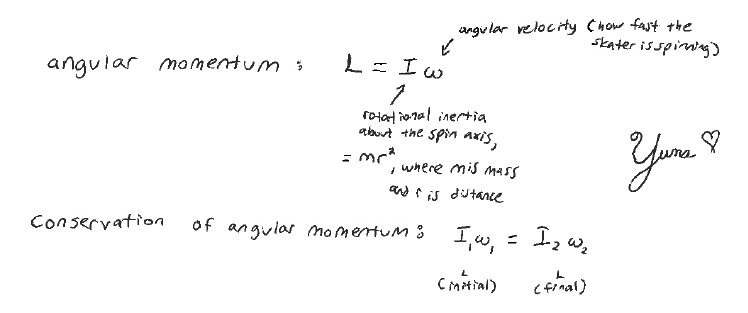 angular velocity (how fast the
skater is spinning)
angular momentum : L = I ω
rotational inertia
about the spin axis,
= mr², where m is mass
and r is distance
Yuna ♡
Conservation of angular momentum : I₁ω₁ = I₂ω₂
L L
(initial) (final)